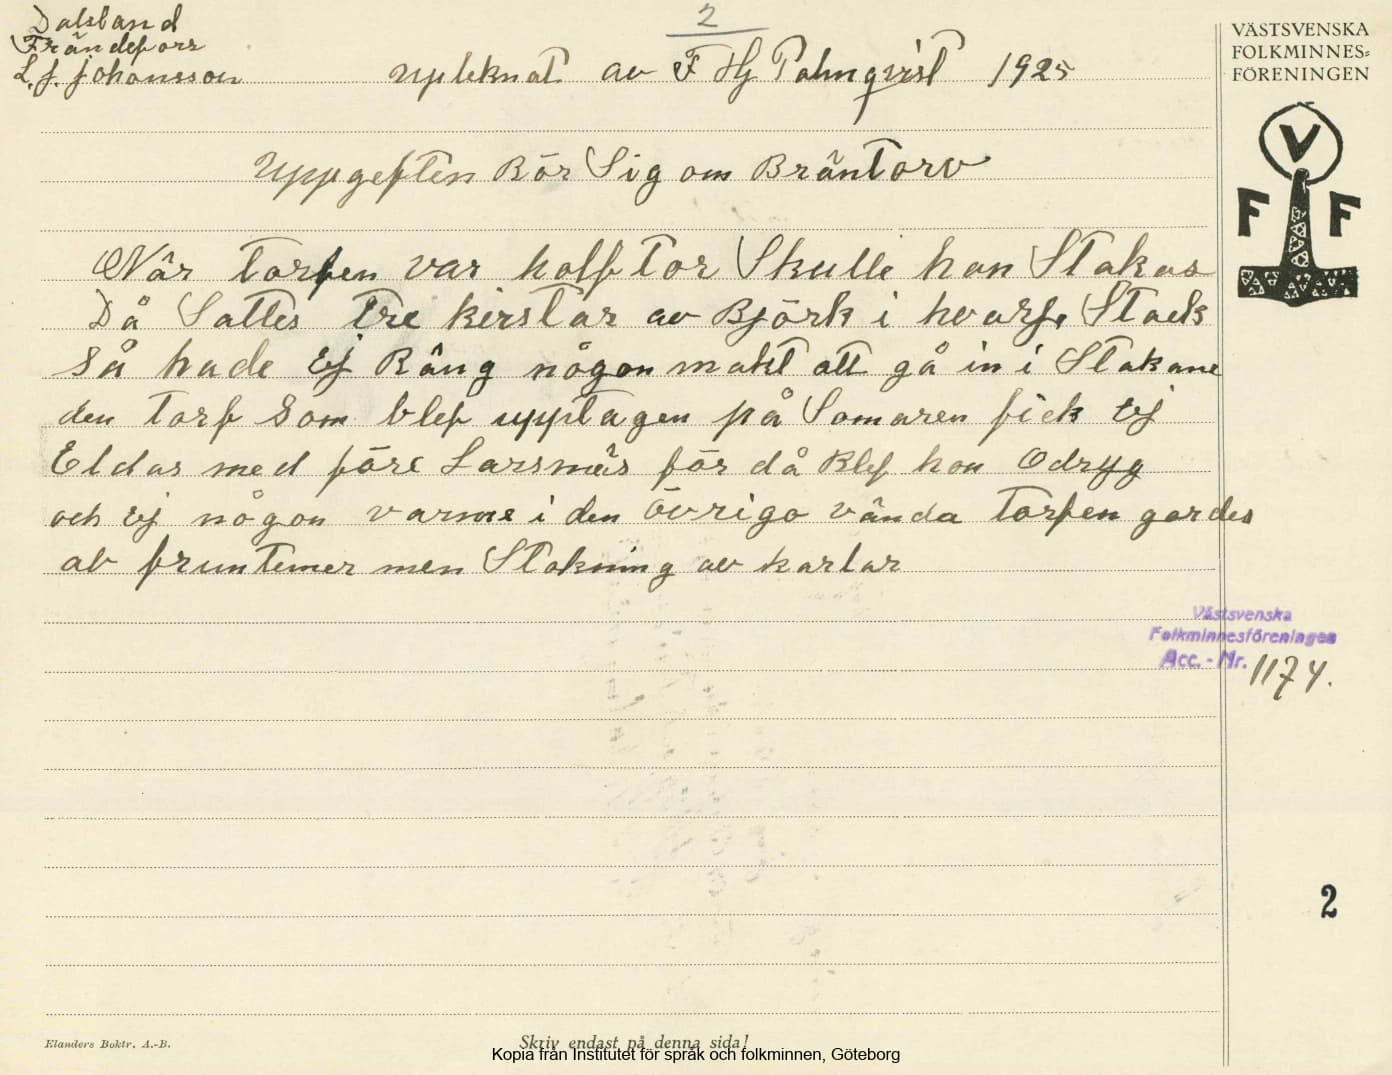 2
Dalsland
Frändefors
L. J. Johansson
upteknat av F Hj Palmqvist 1925
VÄSTSVENSKA
FOLKMINNES-
FÖRENINGEN
V
F F
Uppgeften Rör Sig om Bräntorv
När torfen var halftor Skulle han Stakas
Då Sattes tre kirstar av Björk i hvarje Stack
Så hade Ej Rång någon makt att gå in i Stakane
den torf Som blef upptagen på Somaren fick Ej
Eldas med före Larsmäs för då Blef hon Odryg
och Ej någon varme i den övrigo vända torfen gordes
ab fruntemer men Stakning av karlar
Västsvenska
Folkminnesföreningen
Acc. - Nr. 1174.
2
Elanders Boktr. A.-B.
Skriv endast på denna sida!
Kopia från Institutet för språk och folkminnen, Göteborg